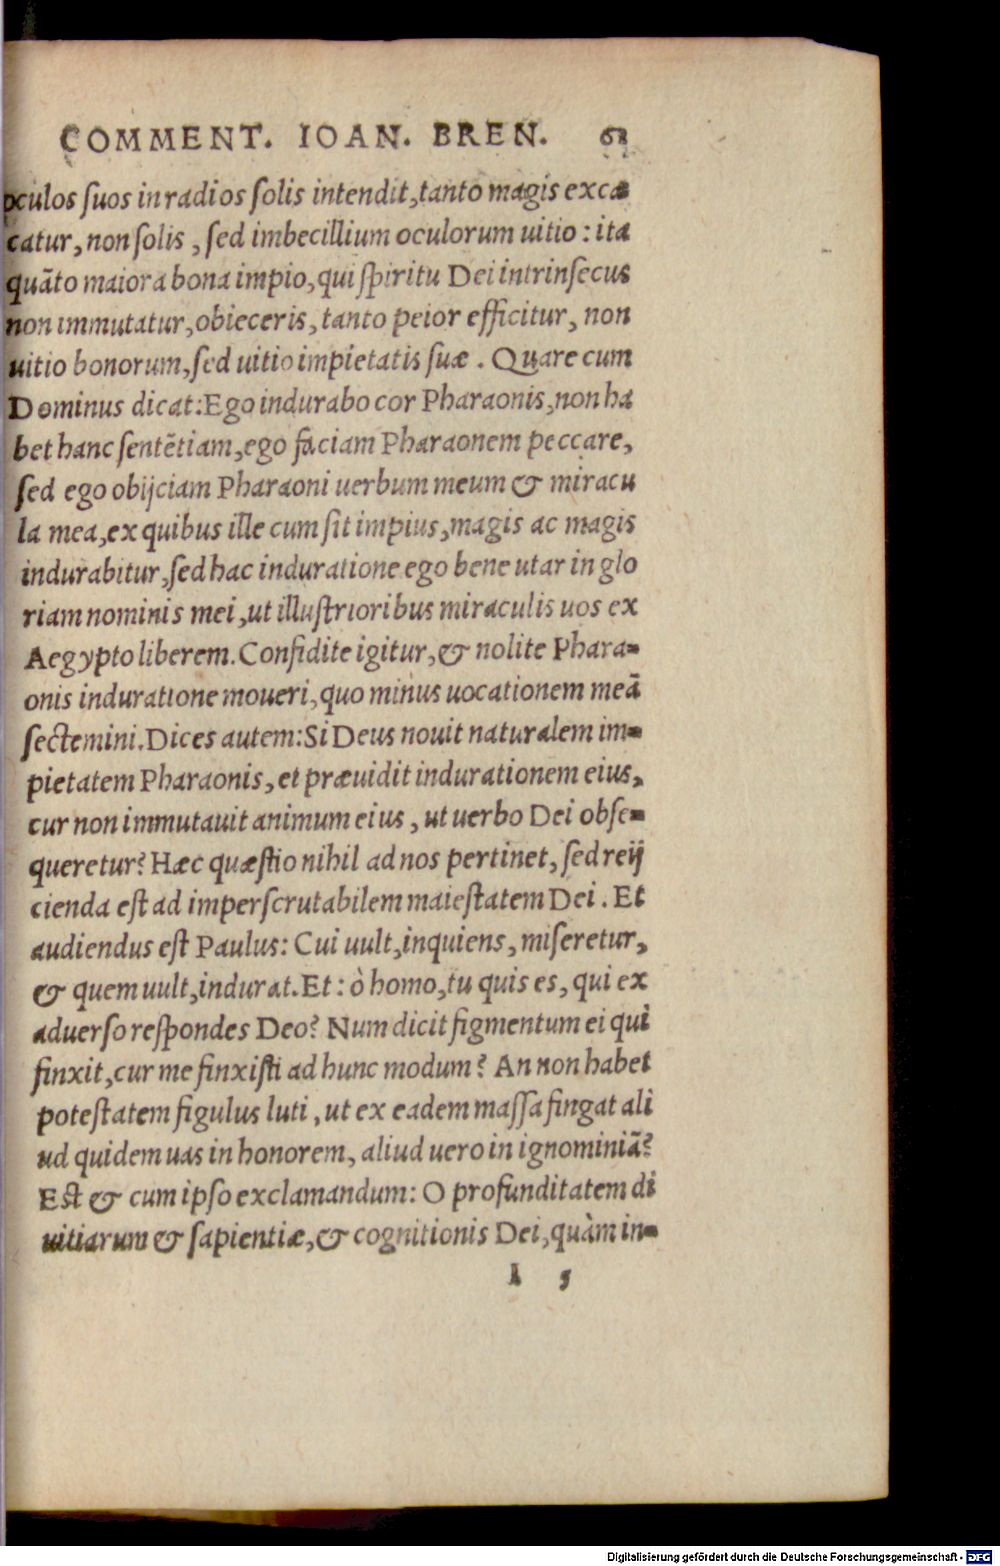 COMMENT. IOAN. BREN.
oculos suos in radios solis intendit, tanto magis excæ-
catur, non solis, sed imbecillium oculorum uitio: ita
quãto maiora bona impio, qui spiritu Dei intrinsecus
non immutatur, obieceris, tanto peior efficitur, non
uitio bonorum, sed uitio impietatis suæ. Quare cum
Dominus dicat: Ego indurabo cor Pharaonis, non ha
bet hanc sentẽtiam, ego faciam Pharaonem peccare,
sed ego obijciam Pharaoni uerbum meum & miracu
la mea, ex quibus ille cum sit impius, magis ac magis
indurabitur, sed hac induratione ego bene utar in glo
riam nominis mei, ut illustrioribus miraculis uos ex
Aegypto liberem. Confidite igitur, & nolite Phara-
onis induratione moueri, quo minus uocationem meã
sectemini. Dices autem: Si Deus nouit naturalem im-
pietatem Pharaonis, et præuidit indurationem eius,
cur non immutauit animum eius, ut uerbo Dei obse-
queretur? Hæc quæstio nihil ad nos pertinet, sed reij
cienda est ad imperscrutabilem maiestatem Dei. Et
audiendus est Paulus: Cui uult, inquiens, miseretur,
& quem uult, indurat. Et: ò homo, tu quis es, qui ex
aduerso respondes Deo? Num dicit figmentum ei qui
finxit, cur me finxisti ad hunc modum? An non habet
potestatem figulus luti, ut ex eadem massa fingat ali
ud quidem uas in honorem, aliud uero in ignominiã?
Est & cum ipso exclamandum: O profunditatem di
uitiarum & sapientiæ, & cognitionis Dei, quàm in-
I 5
Digitalisierung gefördert durch die Deutsche Forschungsgemeinschaft - DFG